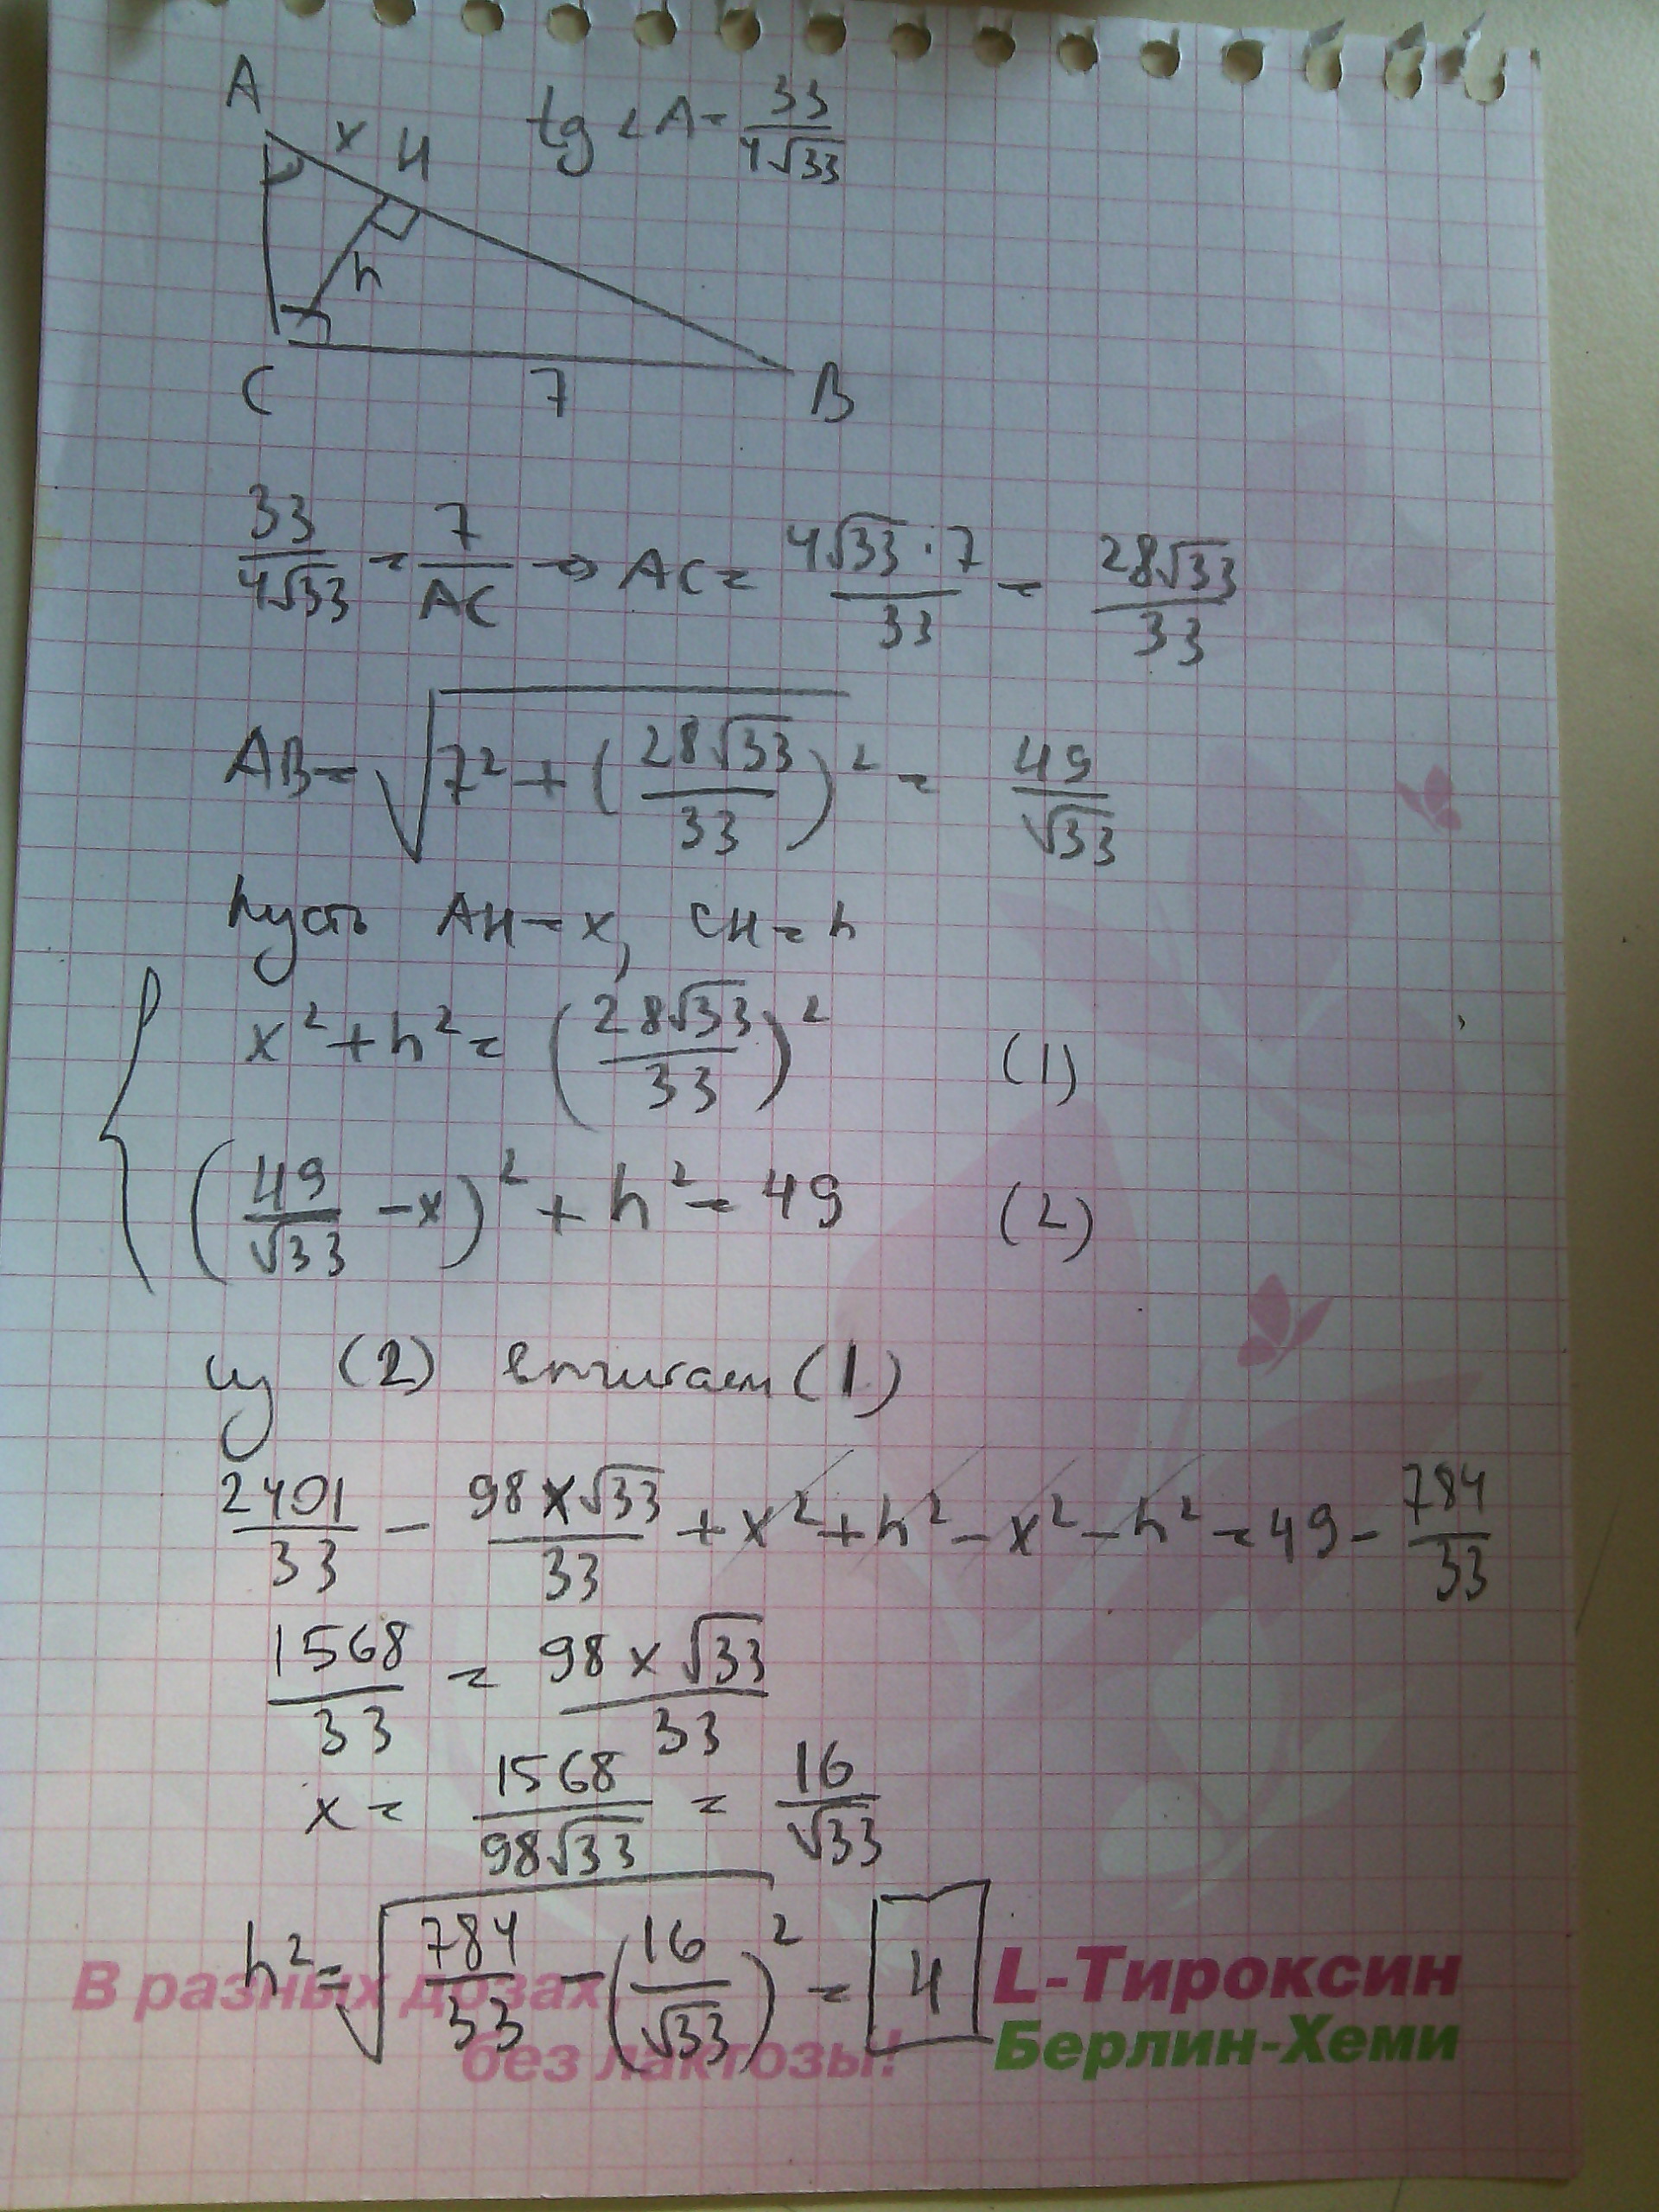 A
x H
tg ∠A = 33/(4√33)
h
C 7 B
33/(4√33) = 7/AC => AC = (4√33 · 7)/33 = 28√33/33
AB = √(7² + (28√33/33)²) = 49/√33
Пусть AH = x, CH = h
x² + h² = (28√33/33)² (1)
(49/√33 - x)² + h² = 49 (2)
из (2) вычитаем (1)
2401/33 - 98x√33/33 + x² + h² - x² - h² = 49 - 784/33
1568/33 = 98x√33/33
x = 1568/(98√33) = 16/√33
h² = √(784/33 - (16/√33)²) = 4
В разных дозах,
без лактозы!
L-Тироксин
Берлин-Хеми